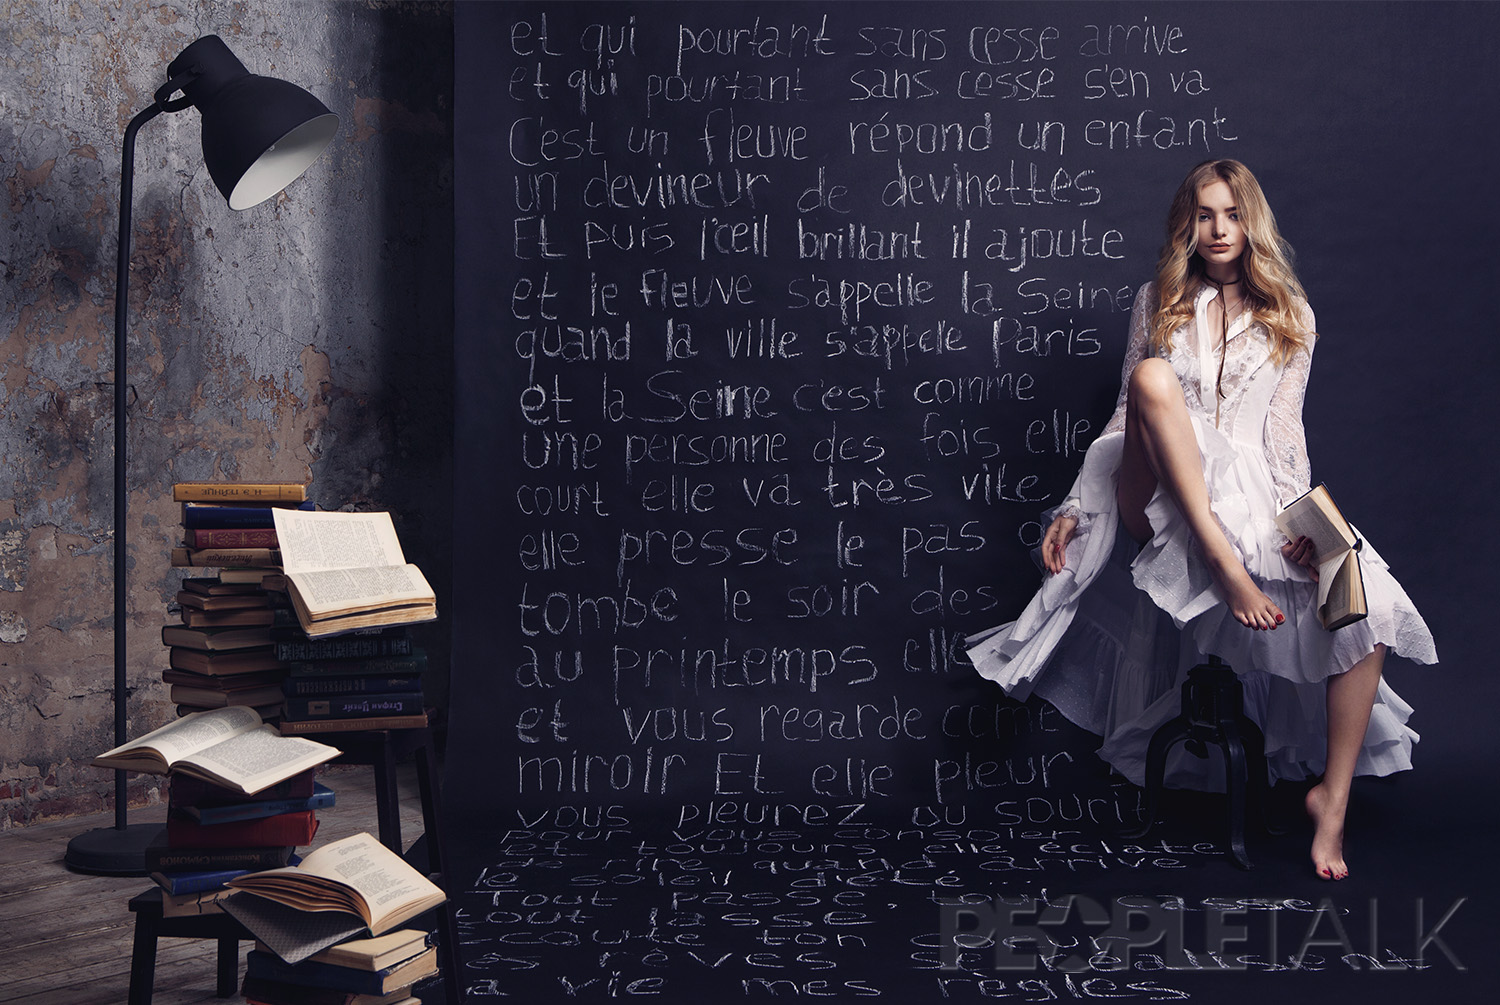 et qui pourtant sans cesse arrive
et qui pourtant sans cesse s'en va
C'est un fleuve répond un enfant
un devineur de devinettes
Et puis l'œil brillant il ajoute
et le fleuve s'appelle la Seine
quand la ville s'appelle Paris
et la Seine c'est comme
une personne des fois elle
court elle va très vite
elle presse le pas q
tombe le soir des
au printemps elle
et vous regarde come
miroir Et elle pleur
vous pleurez ou sourit
pour vous consoler
et toujours elle éclate
de rire quand arrive
le soleil d'été...
Tout passe, tout casse,
tout lasse
Ecoute ton cœur
es rêves se réalisent
a vie mes règles
PEOPLETALK
Стефан Цвейг